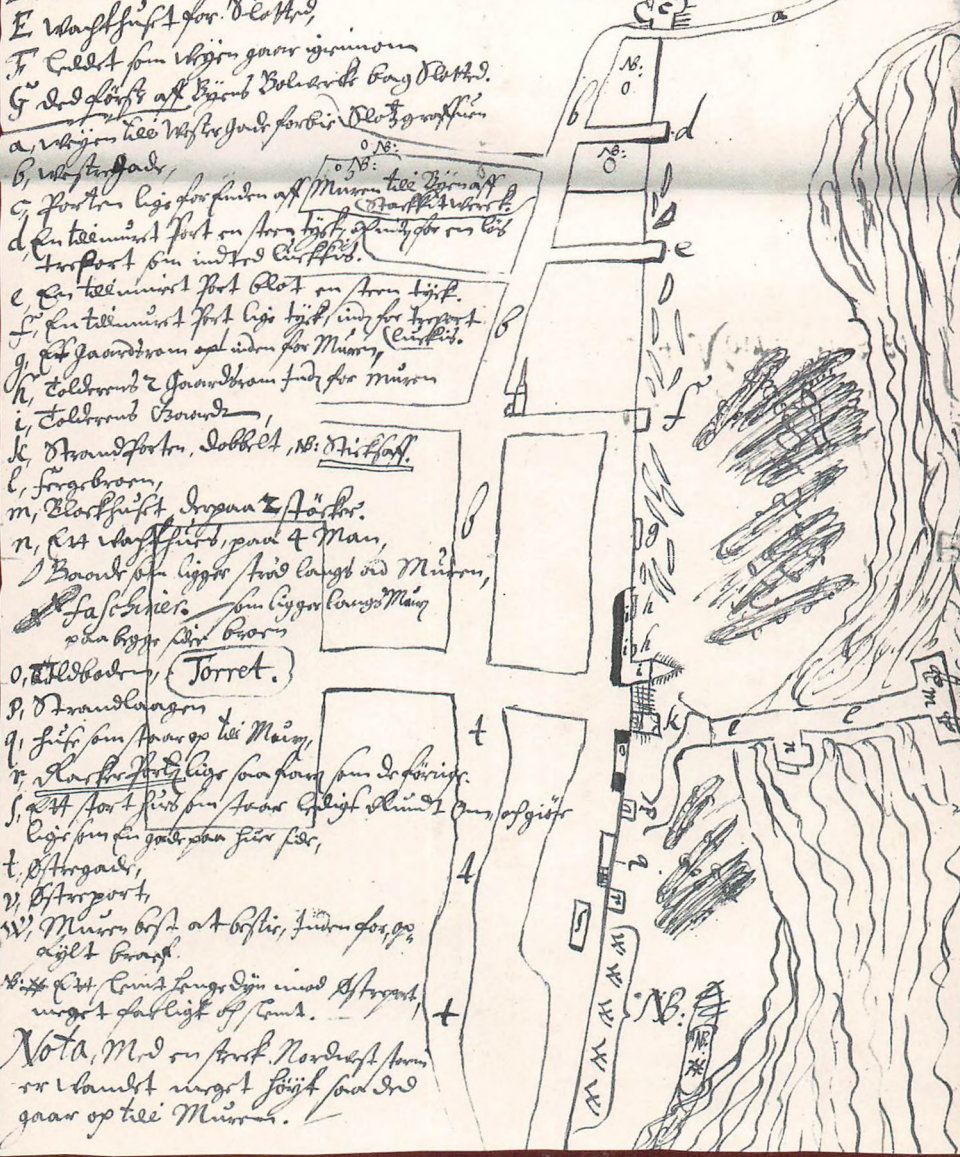 E Wachthuset for Slotted,
F Leddet som Weyen gaar igiennom
G ded første aff Byens Bolwercke bag Slotted.
a, Weyen till Wester Gade forbie Slotzgraffuen
b, Westregade,
c, Porten lige for Enden aff Muren till Byen aff
Stackkitwerck.
d, En tillmuret Port en steen tyck, och indt for en løs
treport som indted luckkis.
e, En tillmuret Port blot en steen tyck.
f, En tillmuret Port lige tyck, ind for treport
luckis.
g, Ett Gaardsrom op inden for Muren,
h, Tolderens 2 Gaardsrom Ind for Muren
i, Tolderens Gaardt,
k, Strandporten, dobbelt, NB: Stickhaff.
l, Fergebroen,
m, Blockhuset, derpaa 2 støcker.
n, Ett Wachthues, paa 4 Man,
Baade som ligger strød langs ud Muren,
Faschiner. som ligger langs Mury
paa begge sider broen
o, Tolboden, Torret.
p, Strandlaagen
q, Huse som staar op till Mury,
r, Raeker Porten lige saa som de førrige.
s, Ett stort hues som staar ledigt Rundt om och giøre
lige som En gade paa huer side,
t, Østregade,
v, Østreport,
W, Muren best at bestie, Inden for, op-
fylt
NB: Ett lengedyn imod Østreport,
meget farligt och slemt.
Nota, Med en sterck Nordwest storm
er Wandet meget høyt saa ded
gaar op till Muren.
C
a
NB:
o
b
d
NB:
O
o NB:
o NB:
e
b
f
b
g
h
i
h
i
i
k
l
l
m
n
o
p
t
q
t
r
s
t
NB:
NB: